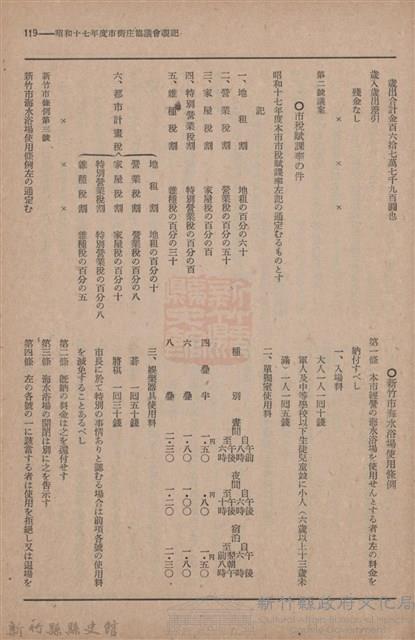 119――昭和十七年度市街庄協議會議記
歲出合計金百六拾七萬七千九百圓也
歲入歲出差引
殘金なし
× × × ×
第二號議案
○市稅賦課率の件
昭和十七年度本市市稅賦課率左記の通定むるものとす
記
一、地租割 地租の百分の六十
二、營業稅割 營業稅の百分の五十
三、家屋稅割 家屋稅の百分の百
四、特別營業稅割 特別營業稅の百分の百
五、雜種稅割 雜種稅の百分の三十
六、都市計畫稅
地租割 地租の百分の十
營業稅割 營業稅の百分の八
家屋稅割 家屋稅の百分の十
特別營業稅割 特別營業稅の百分の八
雜種稅割 雜種稅の百分の五
× × × ×
新竹市條例第三號
新竹市海水浴場使用條例左の通定む
○新竹市海水浴場使用條例
第一條 本市經營の海水浴場を使用せんとする者は左の料金を
納付すべし
一、入場料
大人一人一回十錢
軍人及中等學校以下生徒兒童竝に小人(六歲以上十三歲未
滿)一人一回五錢
二、單獨室使用料
種別 晝間 自午前 時 至午後六時 夜間 自午後 時 至午後十時 宿泊 自午後 時 至翌朝午前八時
四疊半 一・五〇圓 一・〇〇圓 一・五〇圓
六疊 一・八〇 一・二〇 一・八〇
八疊 二・三〇 一・二〇 二・三〇
三、娛樂器具使用料
碁 一回五十錢
將棋 一回三十錢
市長に於て特別の事情ありと認むる場合は前項各號の使用料
を減免することあるべし
第二條 旣納の料金は之を還付せず
第三條 海水浴場の開閉は別に之を告示す
第四條 左の各號の一に該當する者は使用を拒絕し又は退場を
新竹縣縣史館
新竹縣政府文化局
Cultural Affairs Bureau of Hsinchu
County Government